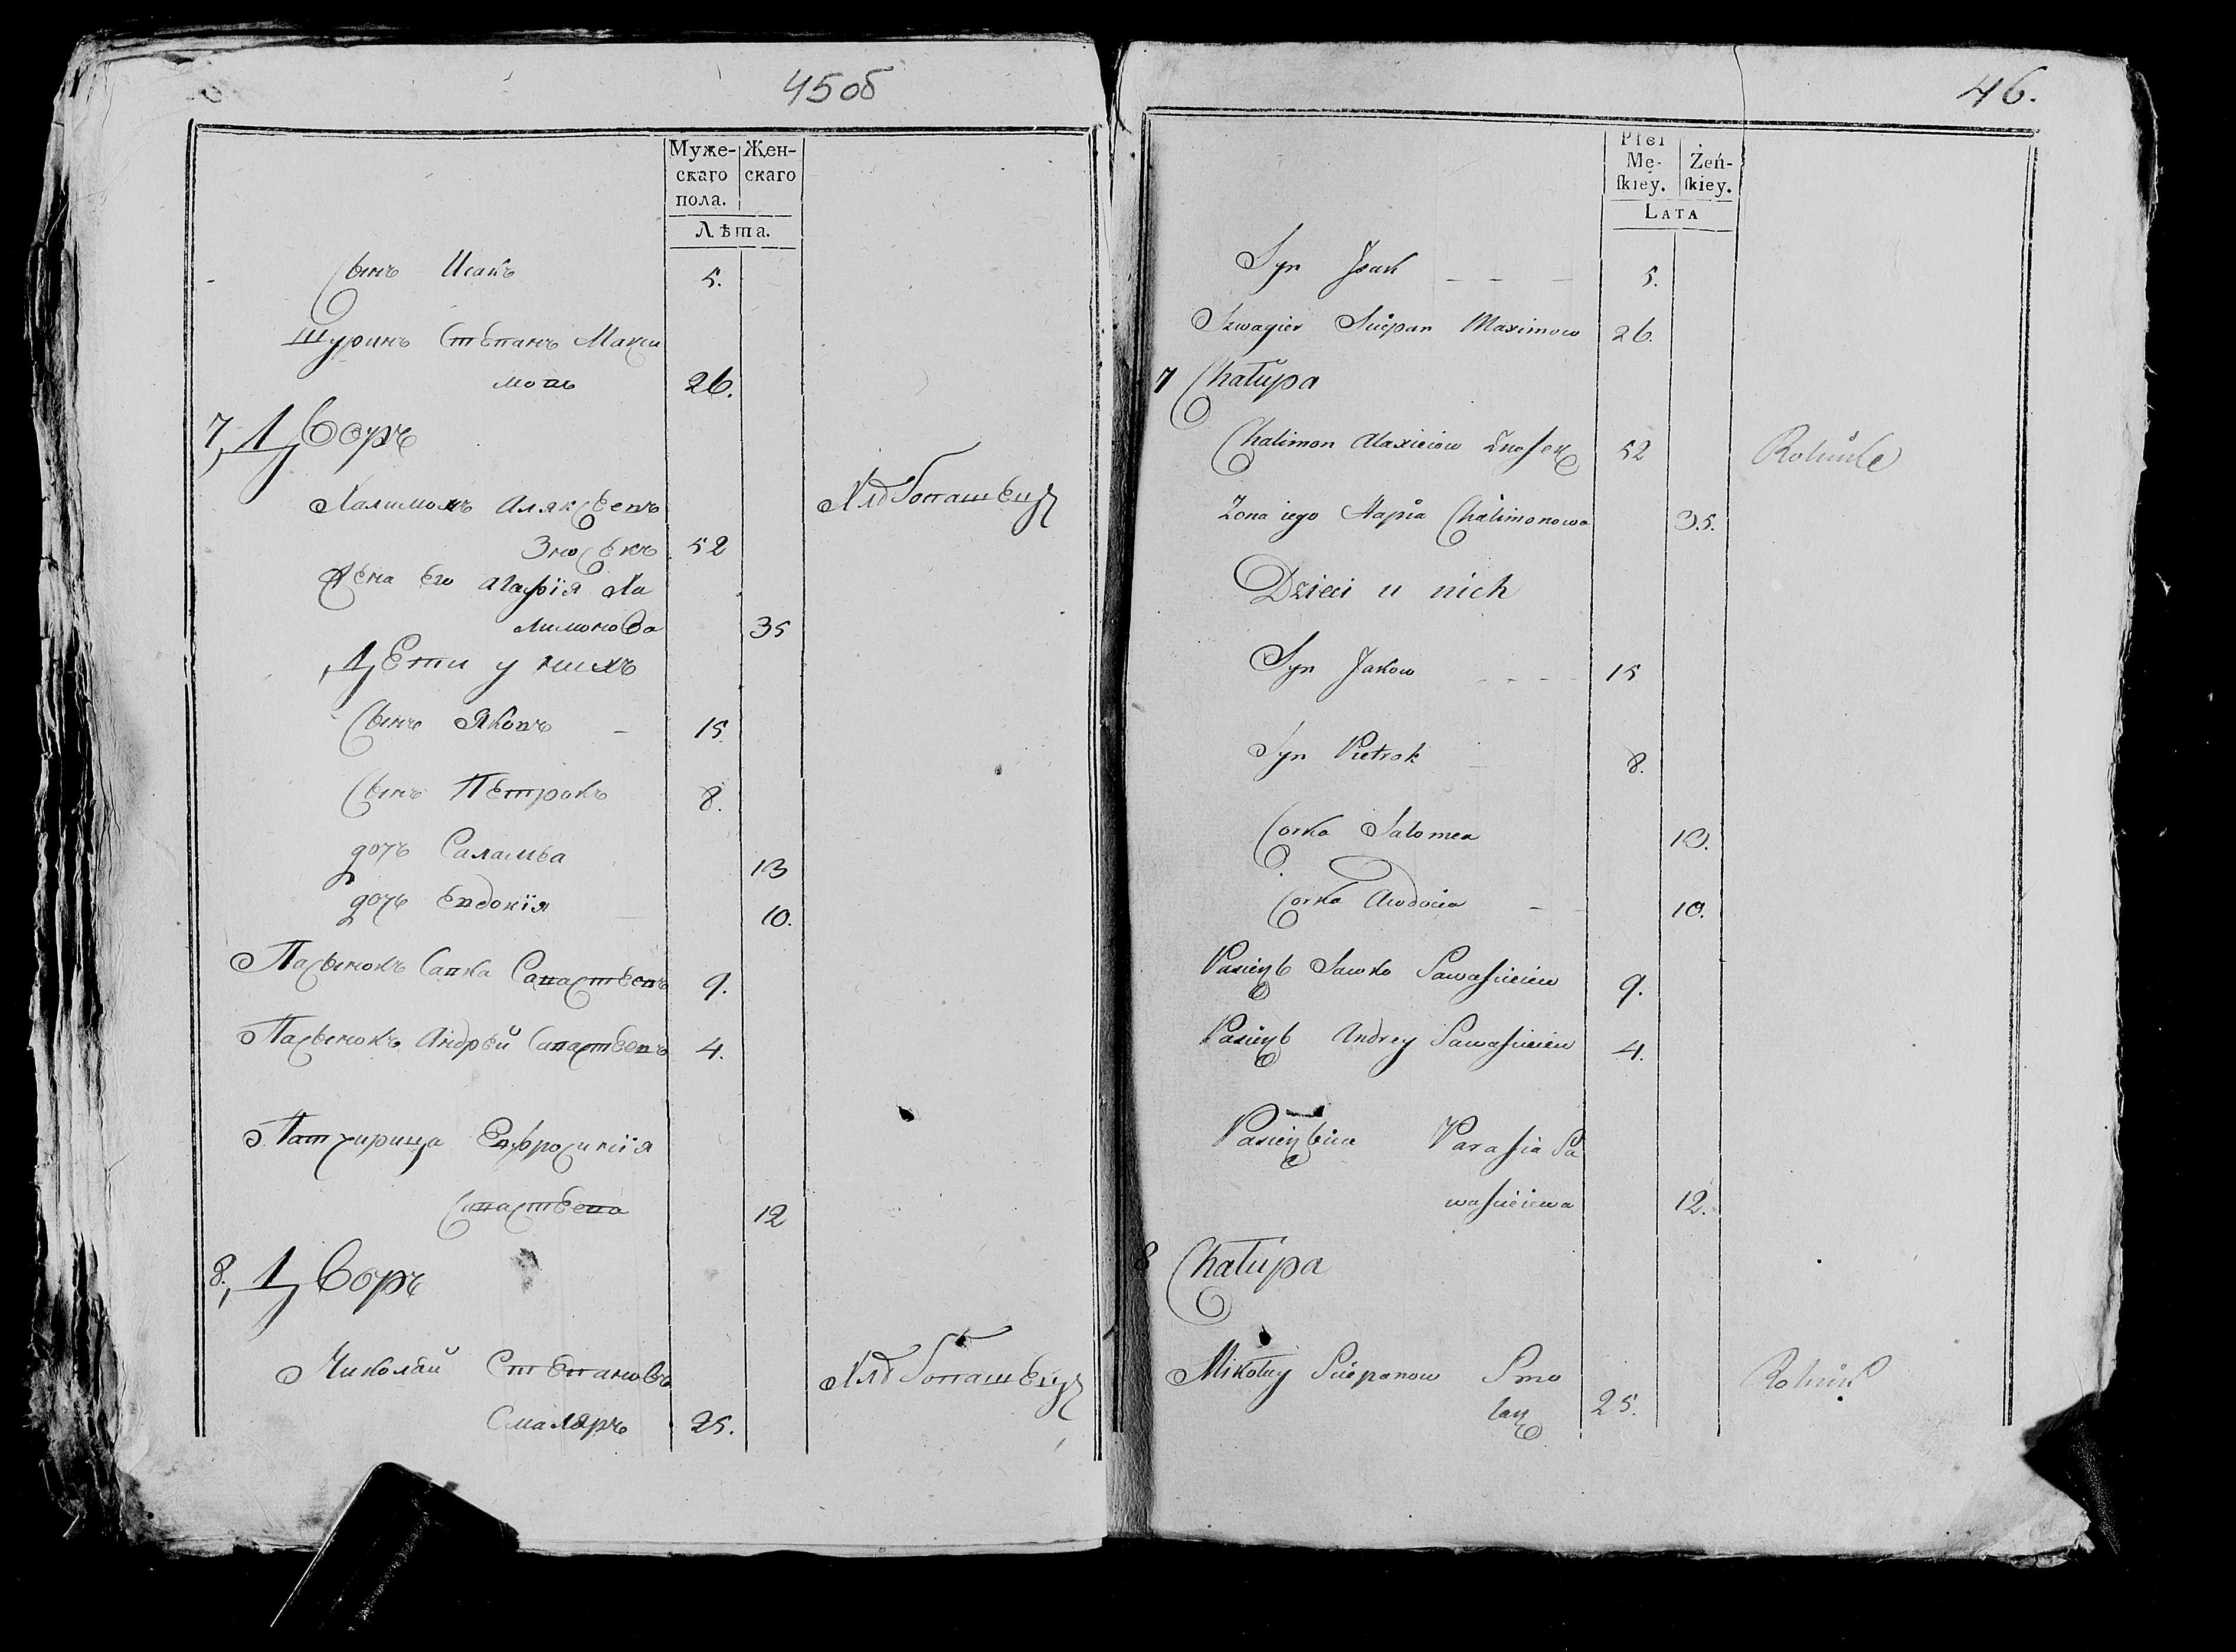 45об
Муже-
скаго
пола.
Жен-
скаго
Лѣта.
Сынъ Исакъ 5.
Шуринъ Степанъ Макси
мовъ 26.
7, Дворъ
Халимонъ Аляксеевъ
Зносекъ 52 Хлебопашецъ
Жена его Агафія Ха
лимонова 35
Дети у нихъ
Сынъ Яковъ 15
Сынъ Петрокъ 8.
дочь Саламея 13
дочь Евдокія 10.
Пасынокъ Савка Савастеевъ 9.
Пасынокъ Андрей Савастеевъ 4.
Патчирица Ефросинія
Савастеева 12
8, Дворъ
Николай Степановъ Хлебопашецъ
Смаляръ 25.
46.
Płei
Mę-
ſkiey.
Żeń-
ſkiey.
LATA
Syn Jsak 5.
Szwagier Sciepan Maximow 26.
7 Chałupa
Chalimon Alaxieiow Znosek 52 Rolnik
Zona iego Hapia Chalimonowa 35.
Dzieci u nich
Syn Jakow 15
Syn Pietrok 8.
Corka Salomea 13.
Corka Awdocia 10.
Pasierzb Sawko Sawaścieiew 9.
Pasierzb Andrey Sawaścieiew 4.
Pasierzbica Parasia Sa
waścieiewa 12.
8 Chałupa
Mikołay Sciepanow Smo
larz 25. Rolnik